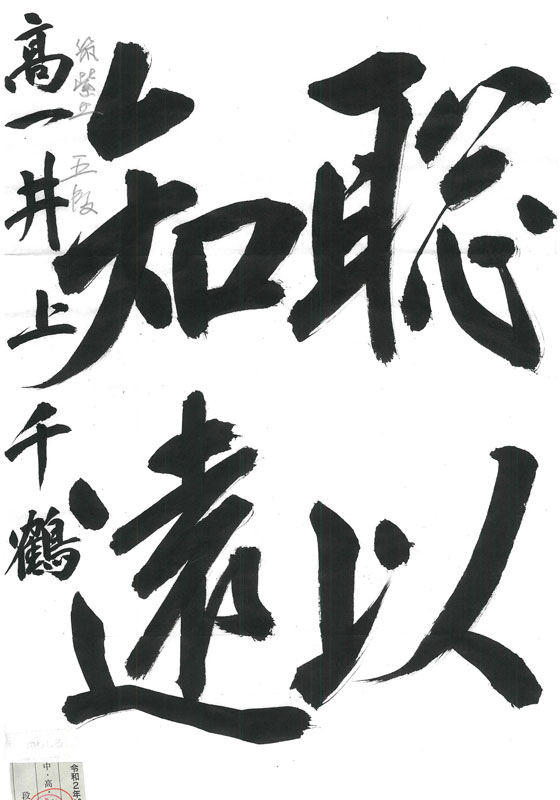 聡以
知遠
筑紫丘 五段
高一 井上千鶴
令和2年
中・高・
段